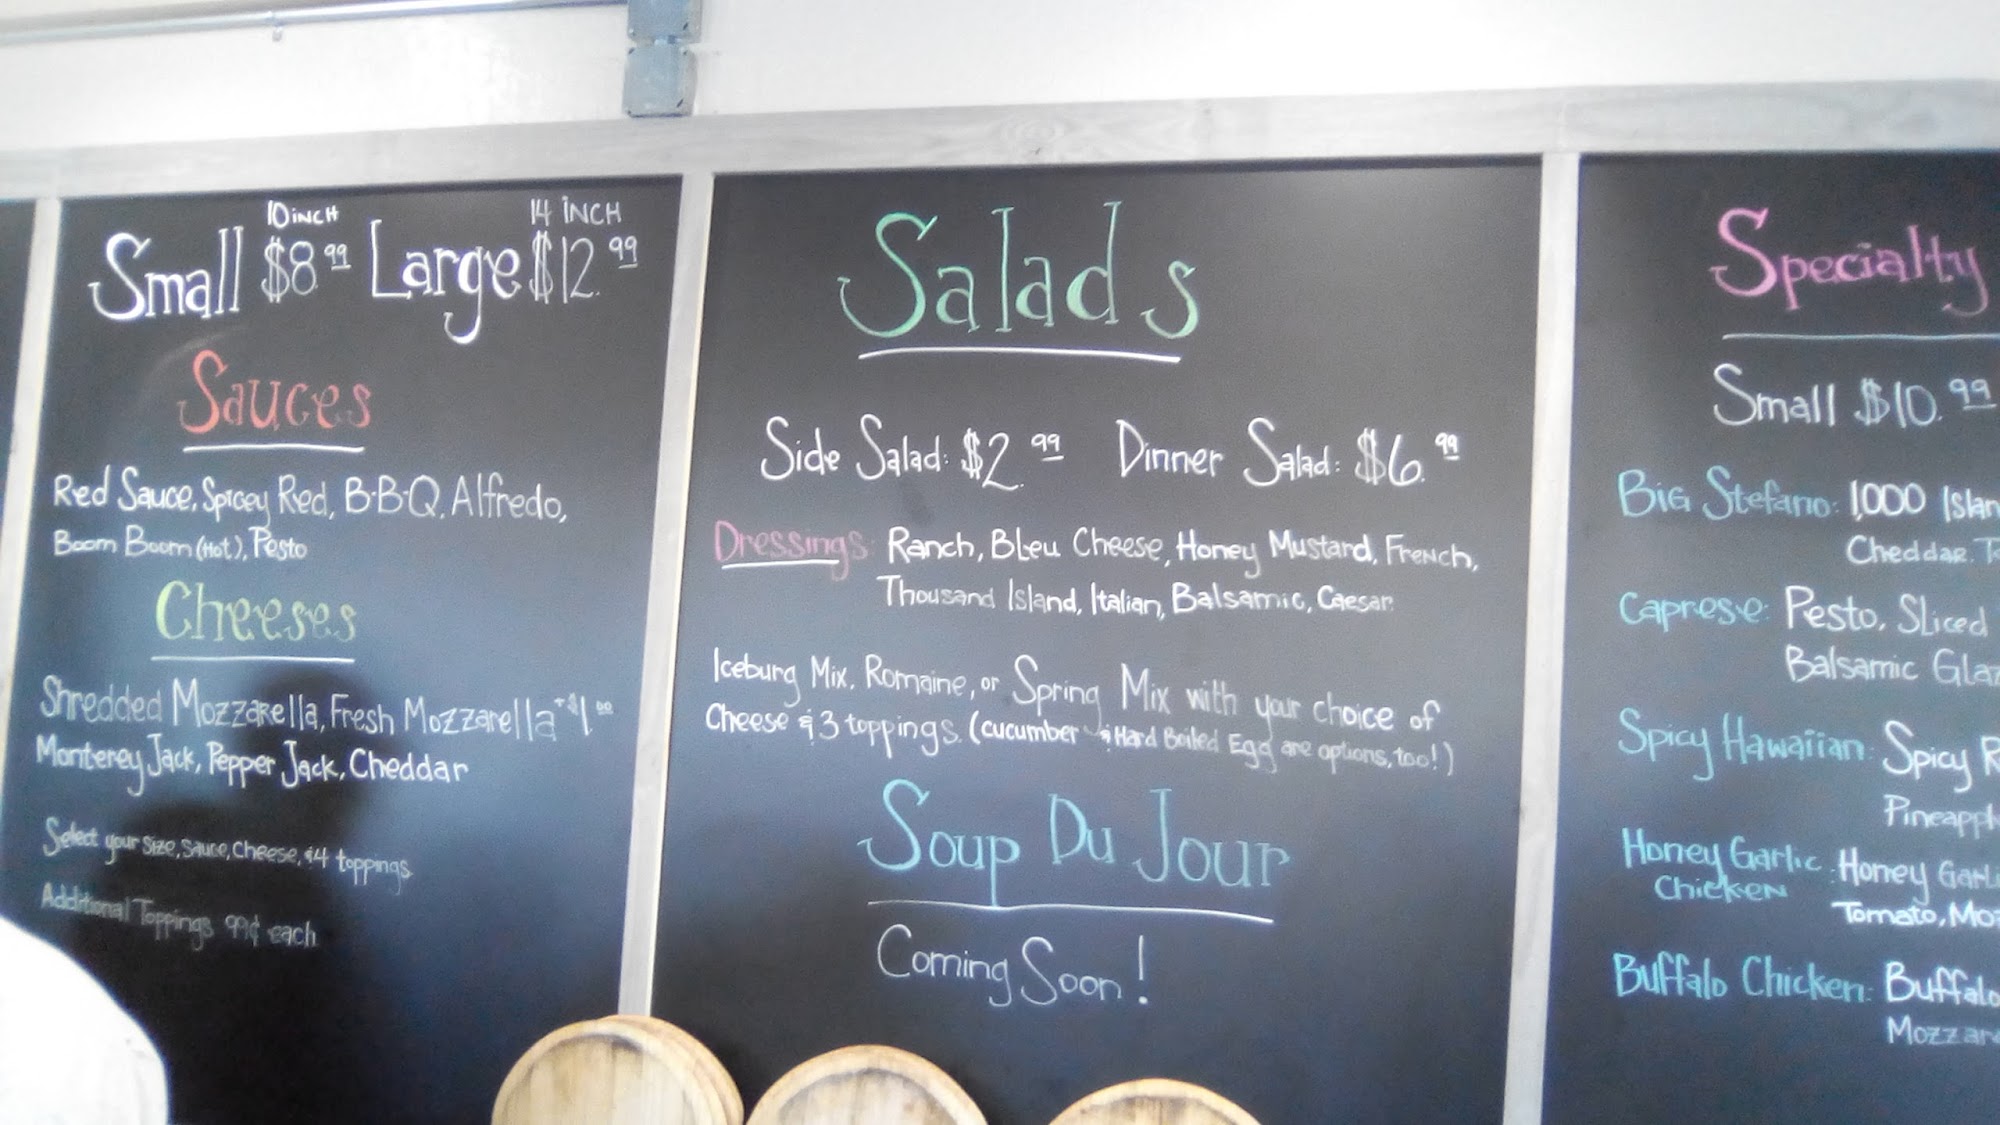 10 inch 14 inch
Small $8.99 Large $12.99
Sauces
Red Sauce, Spicey Red, B-B-Q, Alfredo,
Boom Boom (Hot), Pesto
Cheeses
Shredded Mozzarella, Fresh Mozzarella +$1.00
Monterey Jack, Pepper Jack, Cheddar
Select your size, sauce, cheese, & 4 toppings
Additional Toppings 99¢ each
Salads
Side Salad: $2.99 Dinner Salad: $6.99
Dressings: Ranch, Bleu Cheese, Honey Mustard, French,
Thousand Island, Italian, Balsamic, Caesar
Iceburg Mix, Romaine, or Spring Mix with your choice of
Cheese & 3 toppings. (cucumber & Hard Boiled Egg are options, too!)
Soup Du Jour
Coming Soon!
Specialty
Small $10.99
Big Stefano: 1,000 Islan
Cheddar. To
Caprese: Pesto, Sliced
Balsamic Glaz
Spicy Hawaiian: Spicy R
Pineappl
Honey Garlic Chicken: Honey Garli
Tomato, Moz
Buffalo Chicken: Buffalo
Mozzar